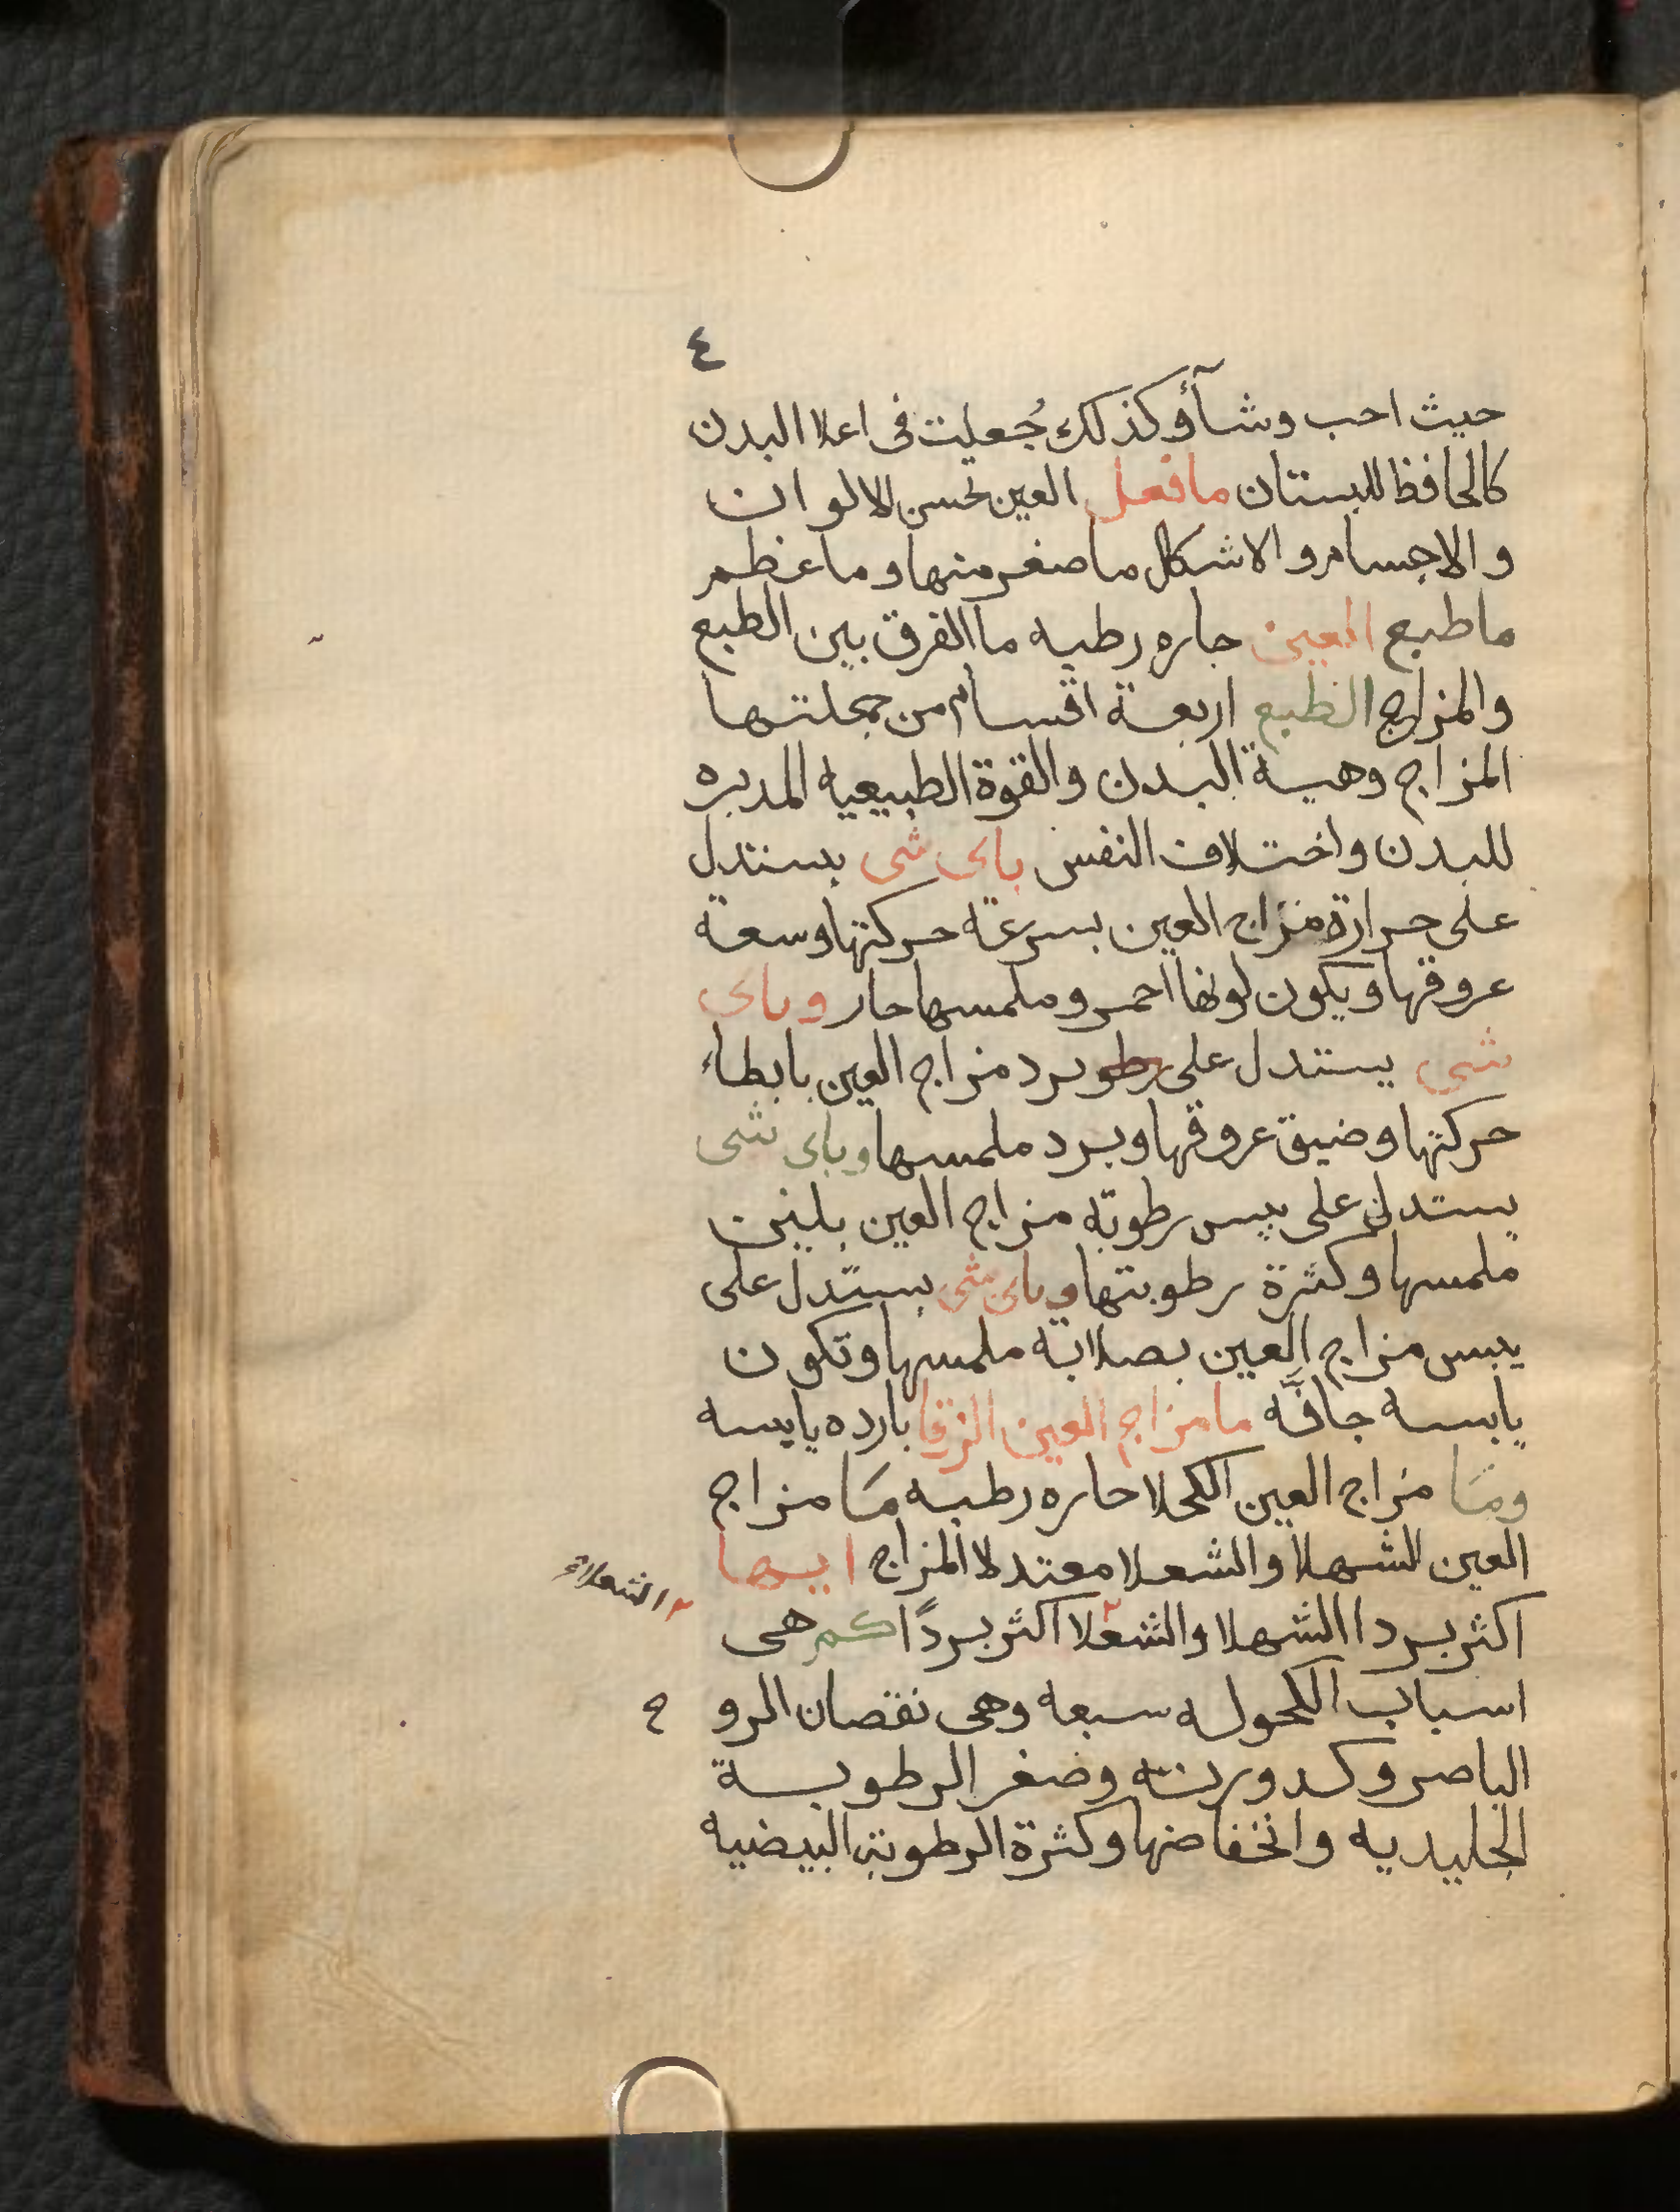 ٤
حيث احب وشآأوكذلك جُعلت فى اعلا البدن
كالحافظ للبستان مافعل العين تحس الالوان
والاجسام والاشكال ماصغر منها وماعظم
ماطبع العين حاره رطبه ما الفرق بين الطبع
والمزاج الطبع اربعة اقسام من جملتها
المزاج وهيية البدن والقوة الطبيعيه المدبره
للبدن واختلاف النفس باى شى يستدل
على حرارة مزاج العين بسرعة حركتها وسعة
عروقها ويكون لونها احمر وملمسها حار وباى
شى يستدل على رطو برد مزاج العين بابطاء
حركتها وضيق عروقها وبرد ملمسها وباى شى
يستدل على يبس رطوبة مزاج العين بلين
ملمسها وكثرة رطوبتها وباى شى يستدل على
يبس مزاج العين بصلابة ملمسها وتكون
يابسه جافّه مامزاج العين الزرقا بارده يابسه
ومَا مزاج العين الكحلا حاره رطبه مَا مزاج
العين الشهلا والشعلا معتدلا المزاج ايها
اكثر بردا الشهلا والشعلا ٢ اكثر بردًا كم هى
٢ الشعلاء
اسباب الكحوله سبعه وهى نقصان الروح
الباصر وكدورته وصغر الرطوبة
الجليديه وانخفاضها وكثرة الرطوبة البيضيه